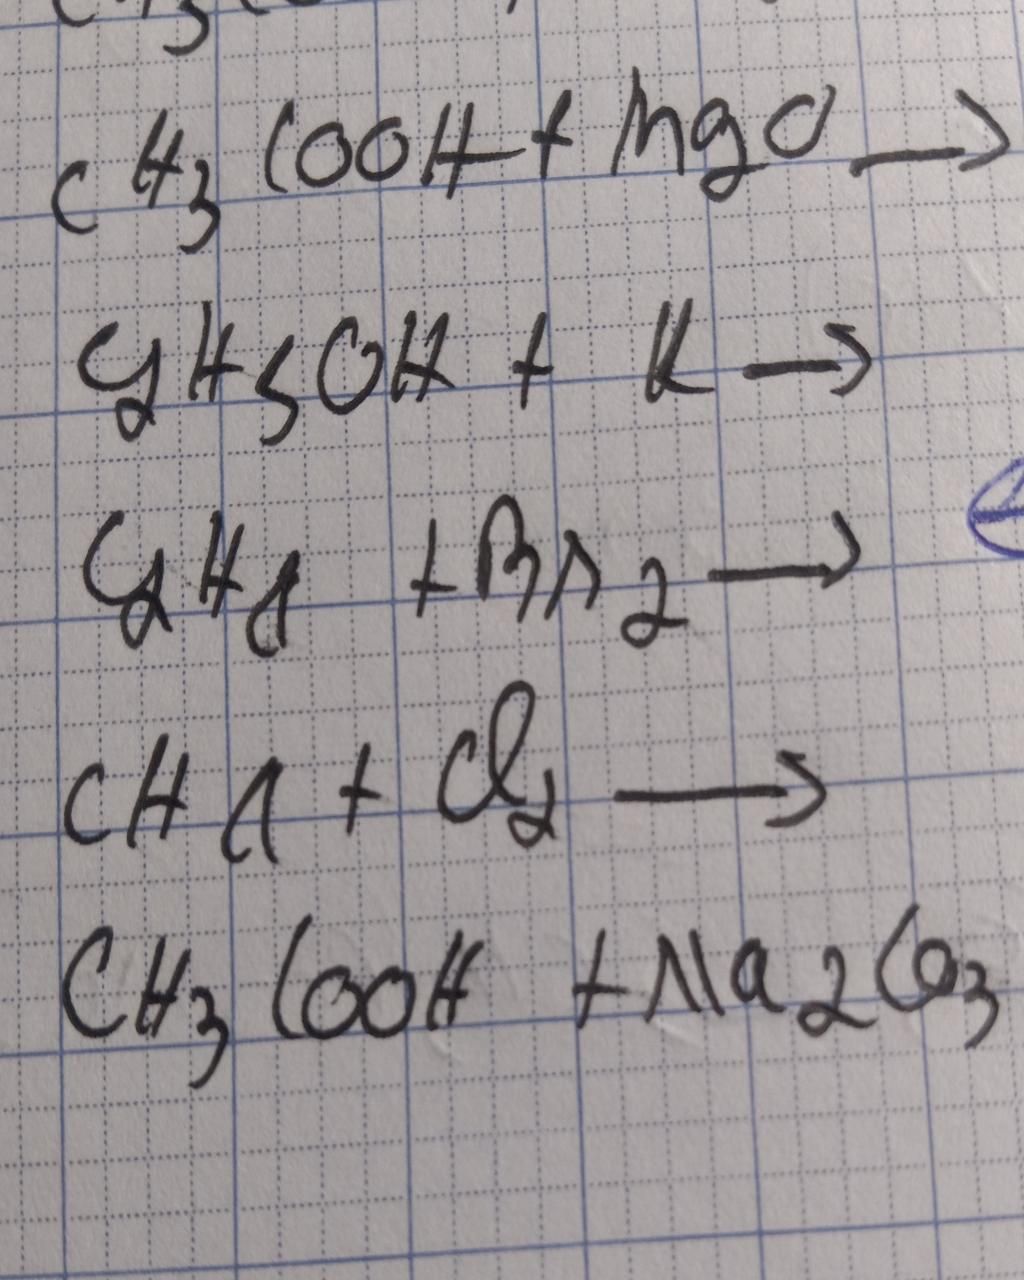 CH3COOH + MgO →
C2H5OH + K →
C2H4 + Br2 →
CH4 + Cl2 →
CH3COOH + Na2CO3